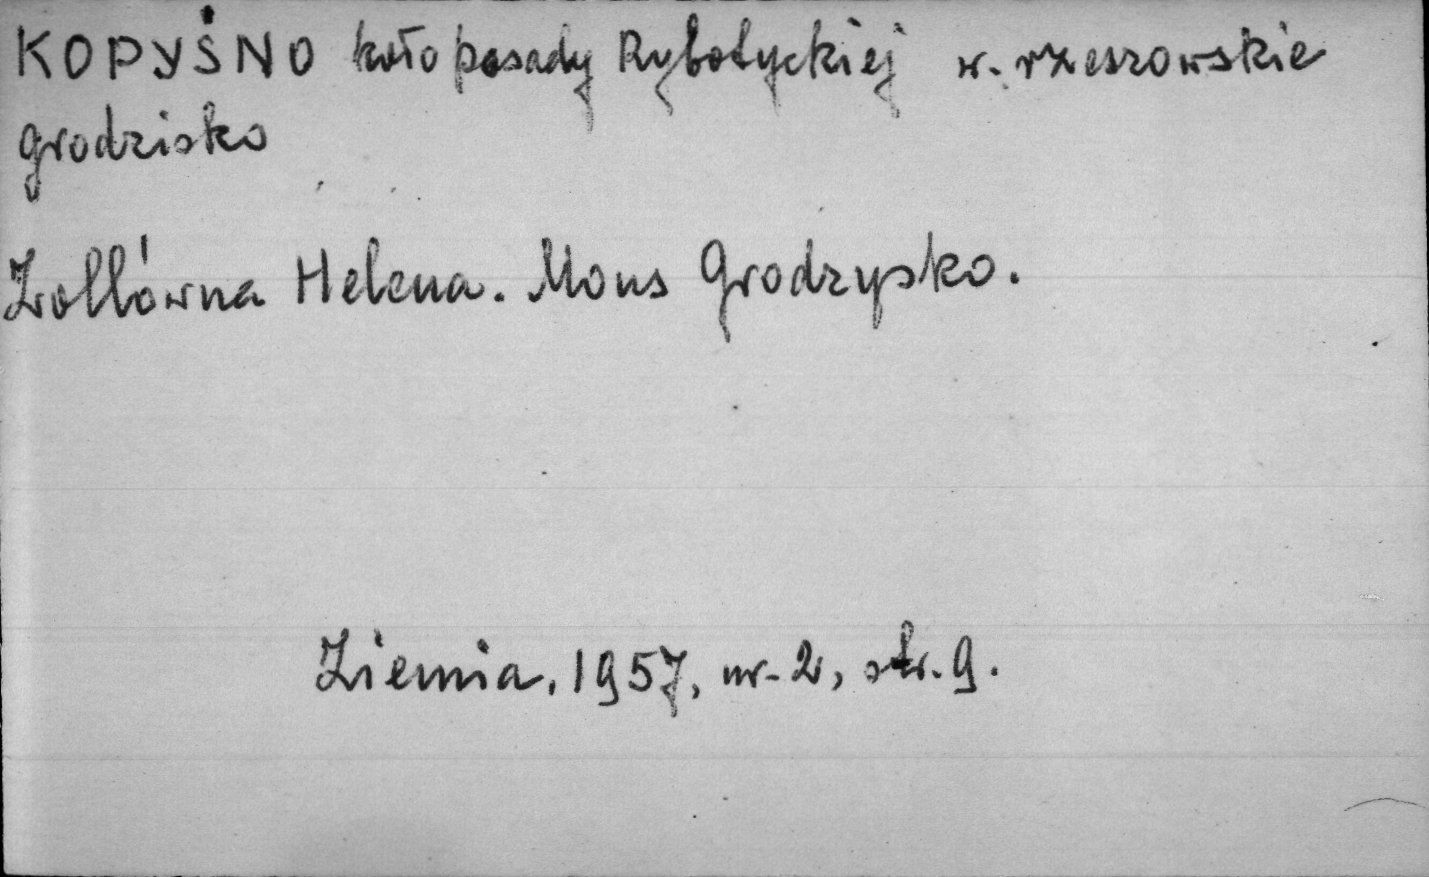 KOPYŚNO koło posady Rybotyckiej w. rzeszowskie
grodzisko
Zollówna Helena. Mons Grodzysko.
Ziemia, 1957, nr. 2, str. 9.